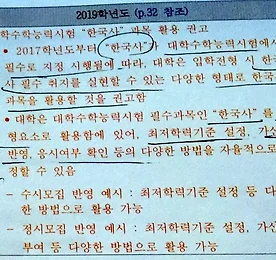 2019학년도 (p.32 참조)
학수학능력시험 "한국사" 과목 활용 권고
• 2017학년도부터 "한국사"가 대학수학능력시험에서
필수로 지정 시행됨에 따라, 대학은 입학전형 시 한국
사 필수 취지를 실현할 수 있는 다양한 형태로 한국
과목을 활용할 것을 권고함
• 대학은 대학수학능력시험 필수과목인 "한국사"를
형요소로 활용함에 있어, 최저학력기준 설정, 가산
반영, 응시여부 확인 등의 다양한 방법을 자율적으로
정할 수 있음
- 수시모집 반영 예시 : 최저학력기준 설정 등 다
한 방법으로 활용 가능
- 정시모집 반영 예시 : 최저학력기준 설정, 가산
부여 등 다양한 방법으로 활용 가능